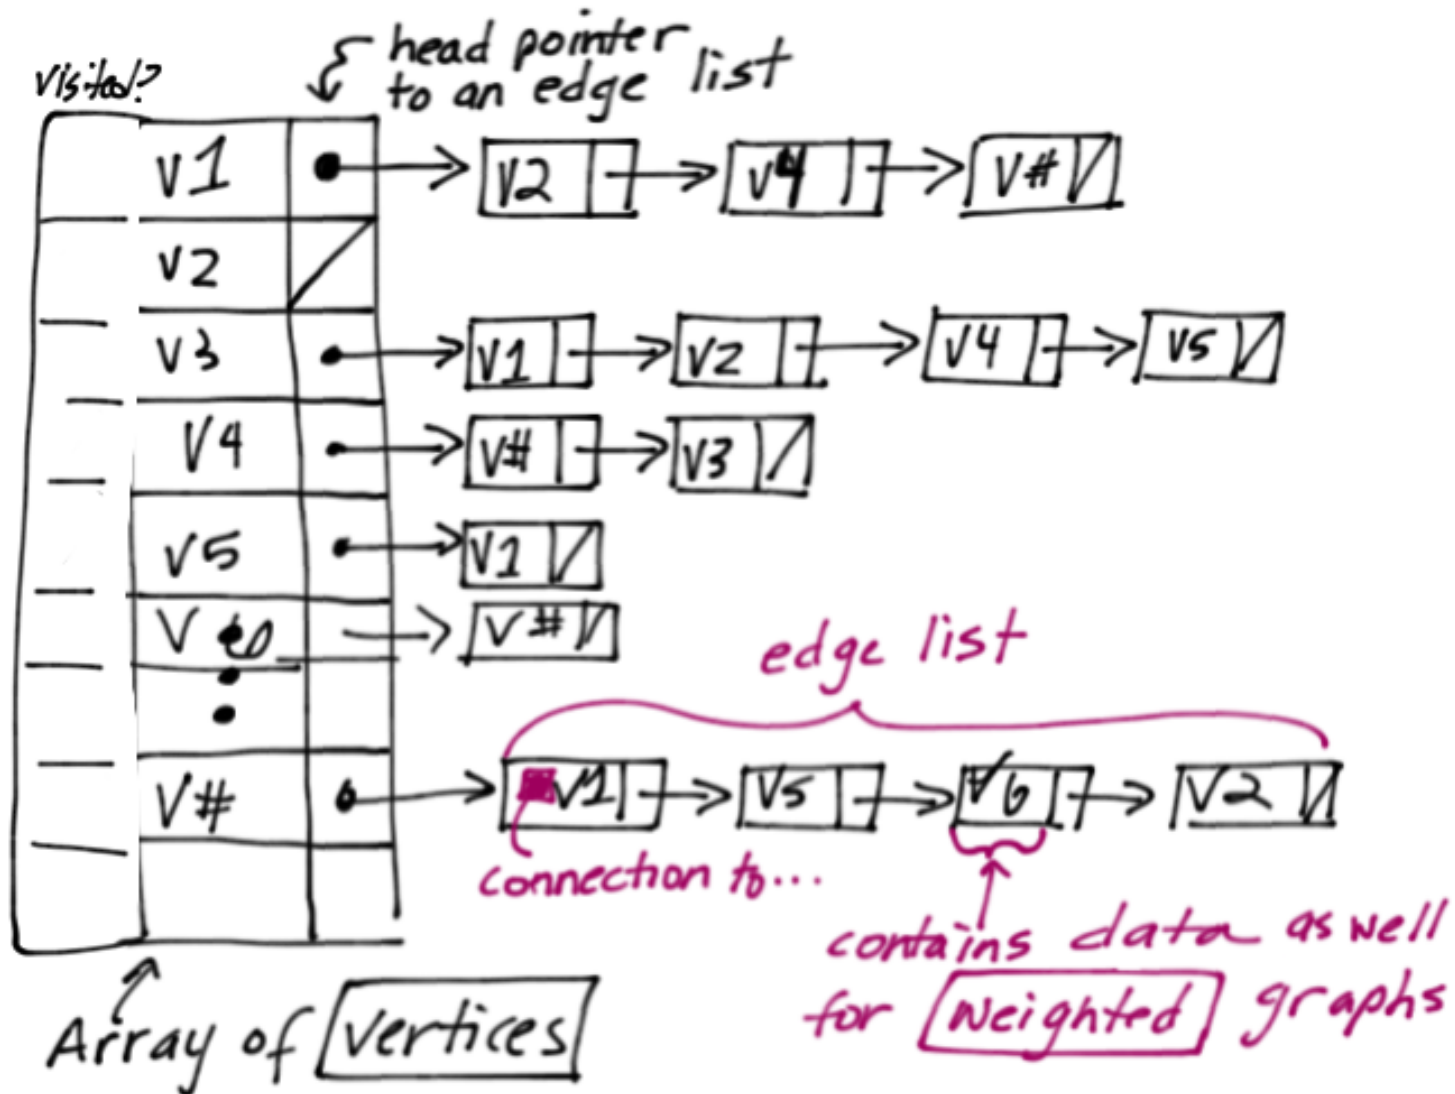 visited?
head pointer
to an edge list
v1 v2 v4 v#
v2
v3 v1 v2 v4 v5
v4 v# v3
v5 v1
v6 v#
edge list
v# v1 v5 v6 v2
connection to...
contains data as well
for weighted graphs
Array of vertices